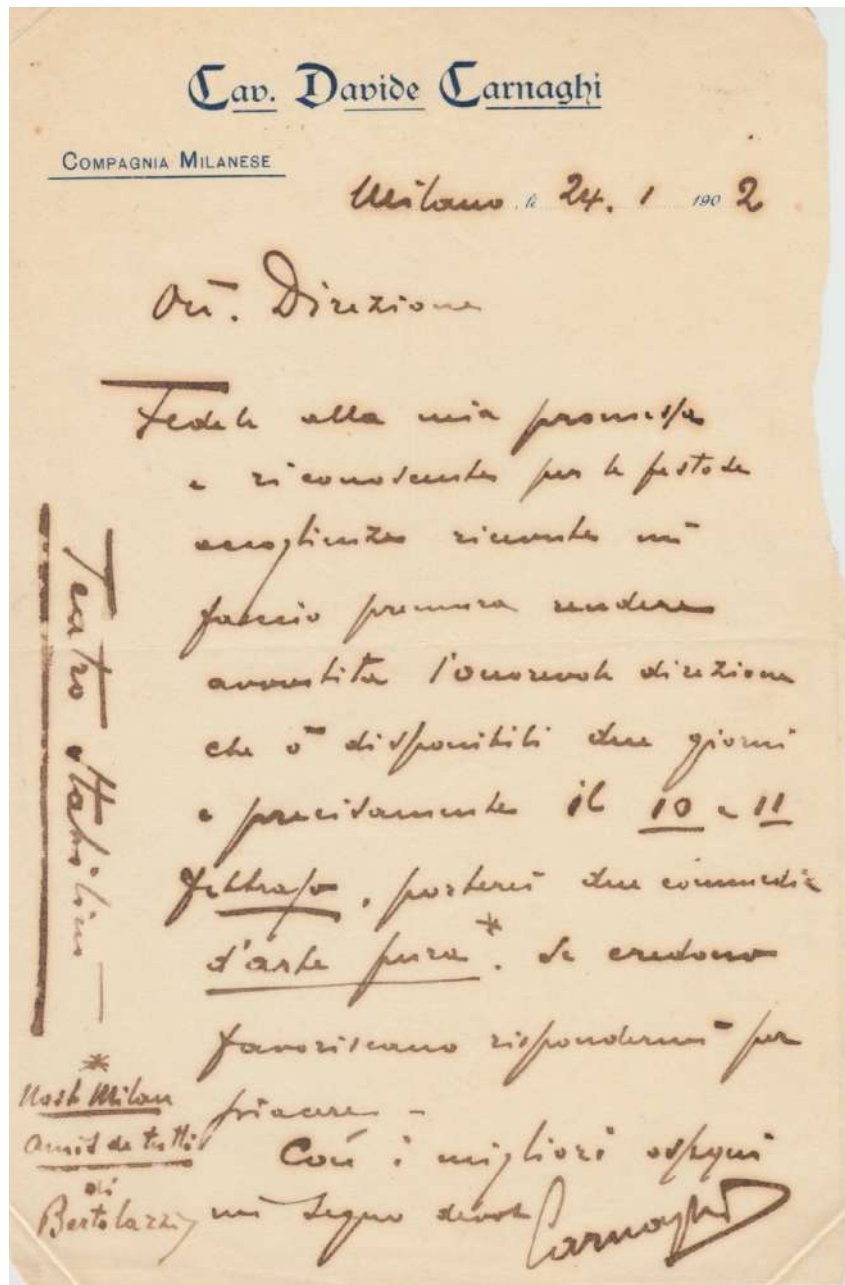 Cav. Davide Carnaghi
COMPAGNIA MILANESE
Milano, li 24. 1 1902
On. Direzione
Fedele alla mia promessa
e riconoscente per le festose
accoglienze ricevute mi
faccio premura rendere
avvertita l'onorevole direzione
che ò disponibili due giorni
e precisamente il 10 e 11
febbrajo, porterei due commedie
d'arte pura*. Se credono
favoriscano rispondermi per
piacere –
Con i migliori ossequi
mi segno devoto
Carnaghi
Teatro
*
Nost Milan
Amis de tutti
di
Bertolazzi